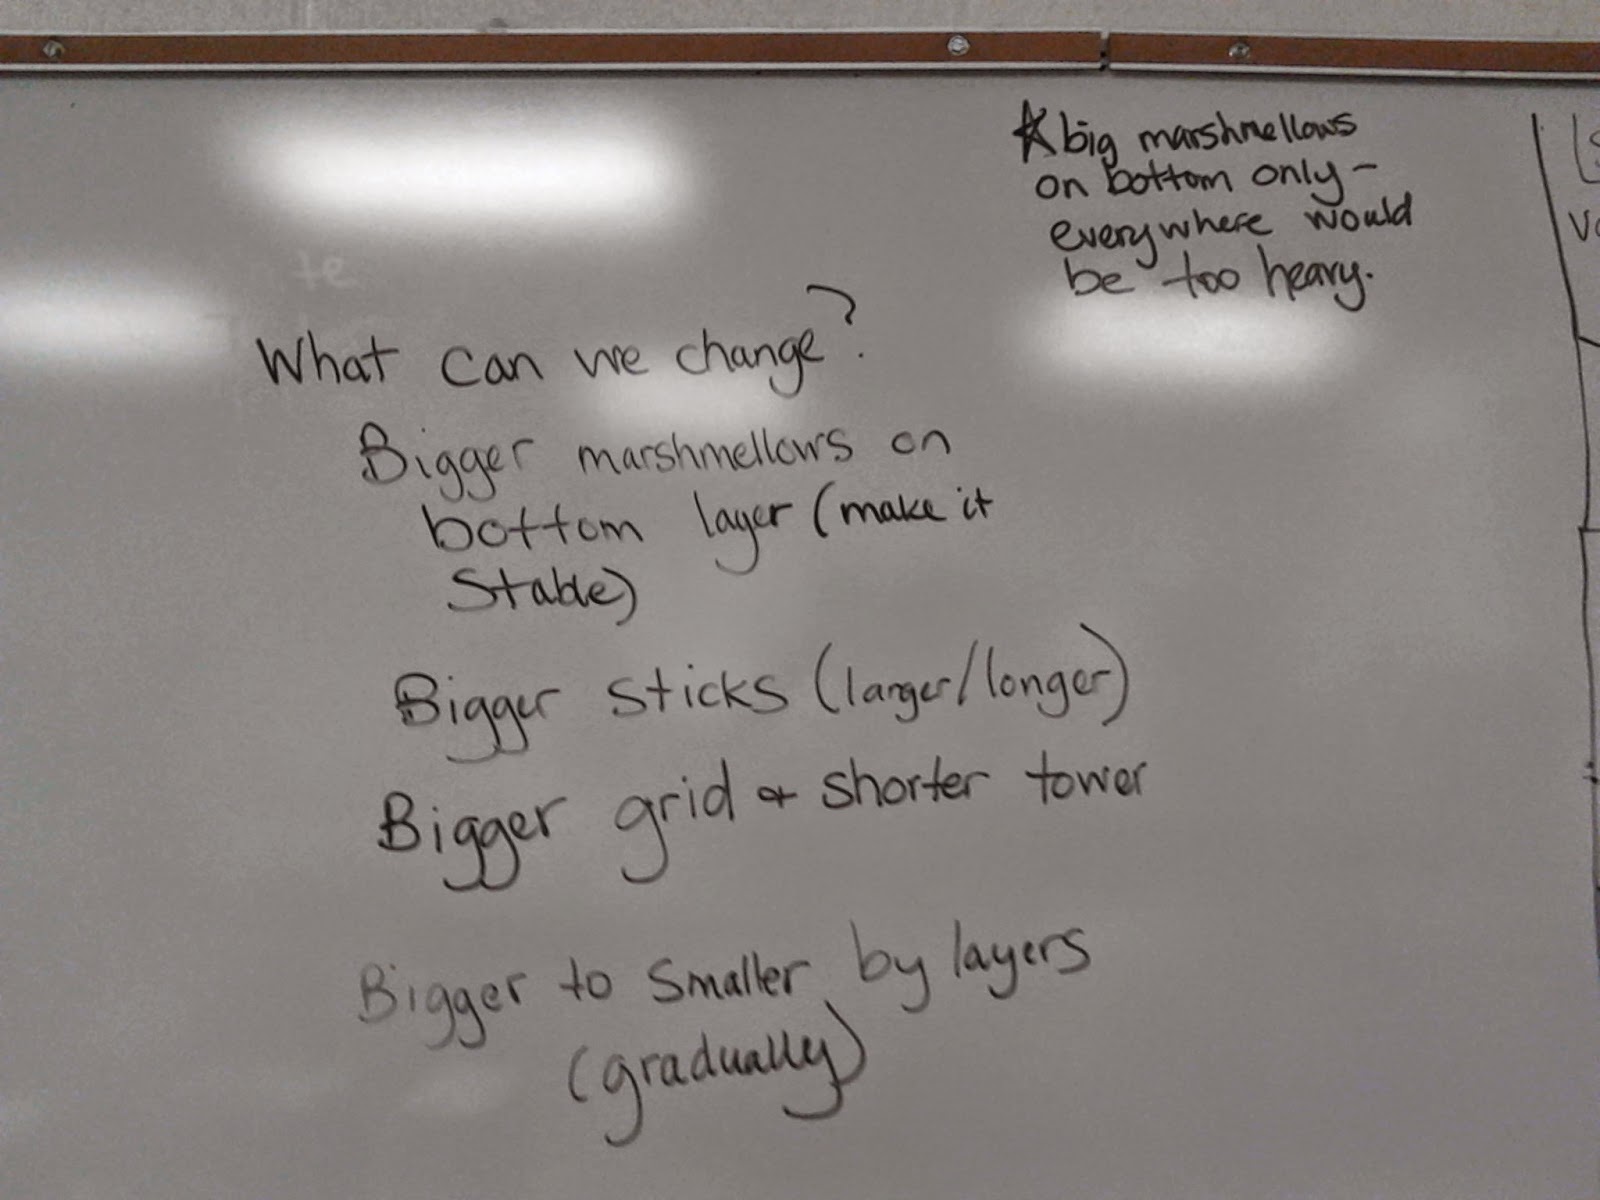 *big marshmellows
on bottom only -
everywhere would
be too heavy.
What can we change?
Bigger marshmellows on
bottom layer (make it
Stable)
Bigger sticks (larger/longer)
Bigger grid & shorter tower
Bigger to smaller by layers
(gradually)